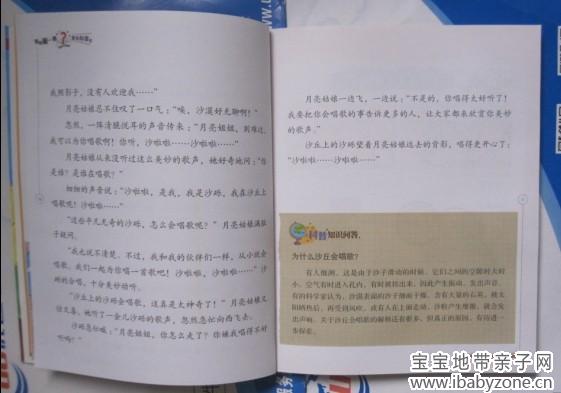 我照影子，没有人欢迎我……”
月亮姑娘忍不住叹了一口气：“唉，沙漠好无聊啊！”
忽然，一阵清脆悦耳的声音传来：“月亮姐姐，别难过，
我可以为你唱歌啊！你听，沙啦啦……沙啦啦……”
月亮姑娘从来没听过这么美妙的歌声，她好奇地问：“你
是谁？是谁在唱歌？”
细细的声音说：“沙啦啦，是我，我是沙砾，我在沙丘上
唱歌呢！沙啦啦……”
“这些平凡无奇的沙砾，怎么会唱歌呢？”月亮姑娘满肚
子疑问。
“我也说不清楚。不过，我和我的伙伴们一样，从小就会
唱歌。我们一起为你唱一首歌吧！沙啦啦，沙啦啦……”沙
砾的合唱，十分美妙动听。
“沙丘上的沙砾会唱歌，这真是太神奇了！”月亮姑娘又
惊又喜，她听了一会儿沙砾的歌声，忽然急忙向西飞去。
沙砾急忙喊：“月亮姐姐，你怎么走了？你嫌我唱得不好
听吗？”
月亮姑娘一边飞，一边说：“不是的，你唱得太好听了！
我要把你会唱歌的事告诉更多的人，让大家都来欣赏你美妙
的歌声。”
沙丘上的沙砾望着月亮姑娘远去的背影，唱得更开心了：
“沙啦啦……沙啦啦……”
科普知识问答：
为什么沙丘会唱歌？
有人推测，这是由于沙子滑动的时候，它们之间的空隙时大时
小，空气有时进入孔内，有时被挤出来，因此产生振动，发出声音。
有的科学家认为，沙漠表面的沙子细而干燥，含有大量的石英，被太
阳晒热后，再受到风吹，或有人在上面走动，沙粒产生摩擦，就会发
出声响。关于沙丘会唱歌的解释还有很多，但真正的原因，有待进一
步探索。
宝宝地带亲子网
www.ibabyzone.cn